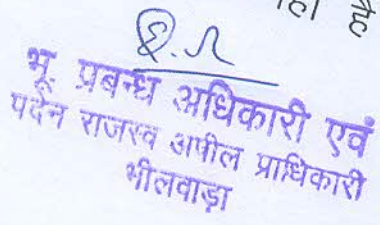 हा है
भू. प्रबन्ध अधिकारी एवं
पदेन राजस्व अपील प्राधिकारी
भीलवाड़ा